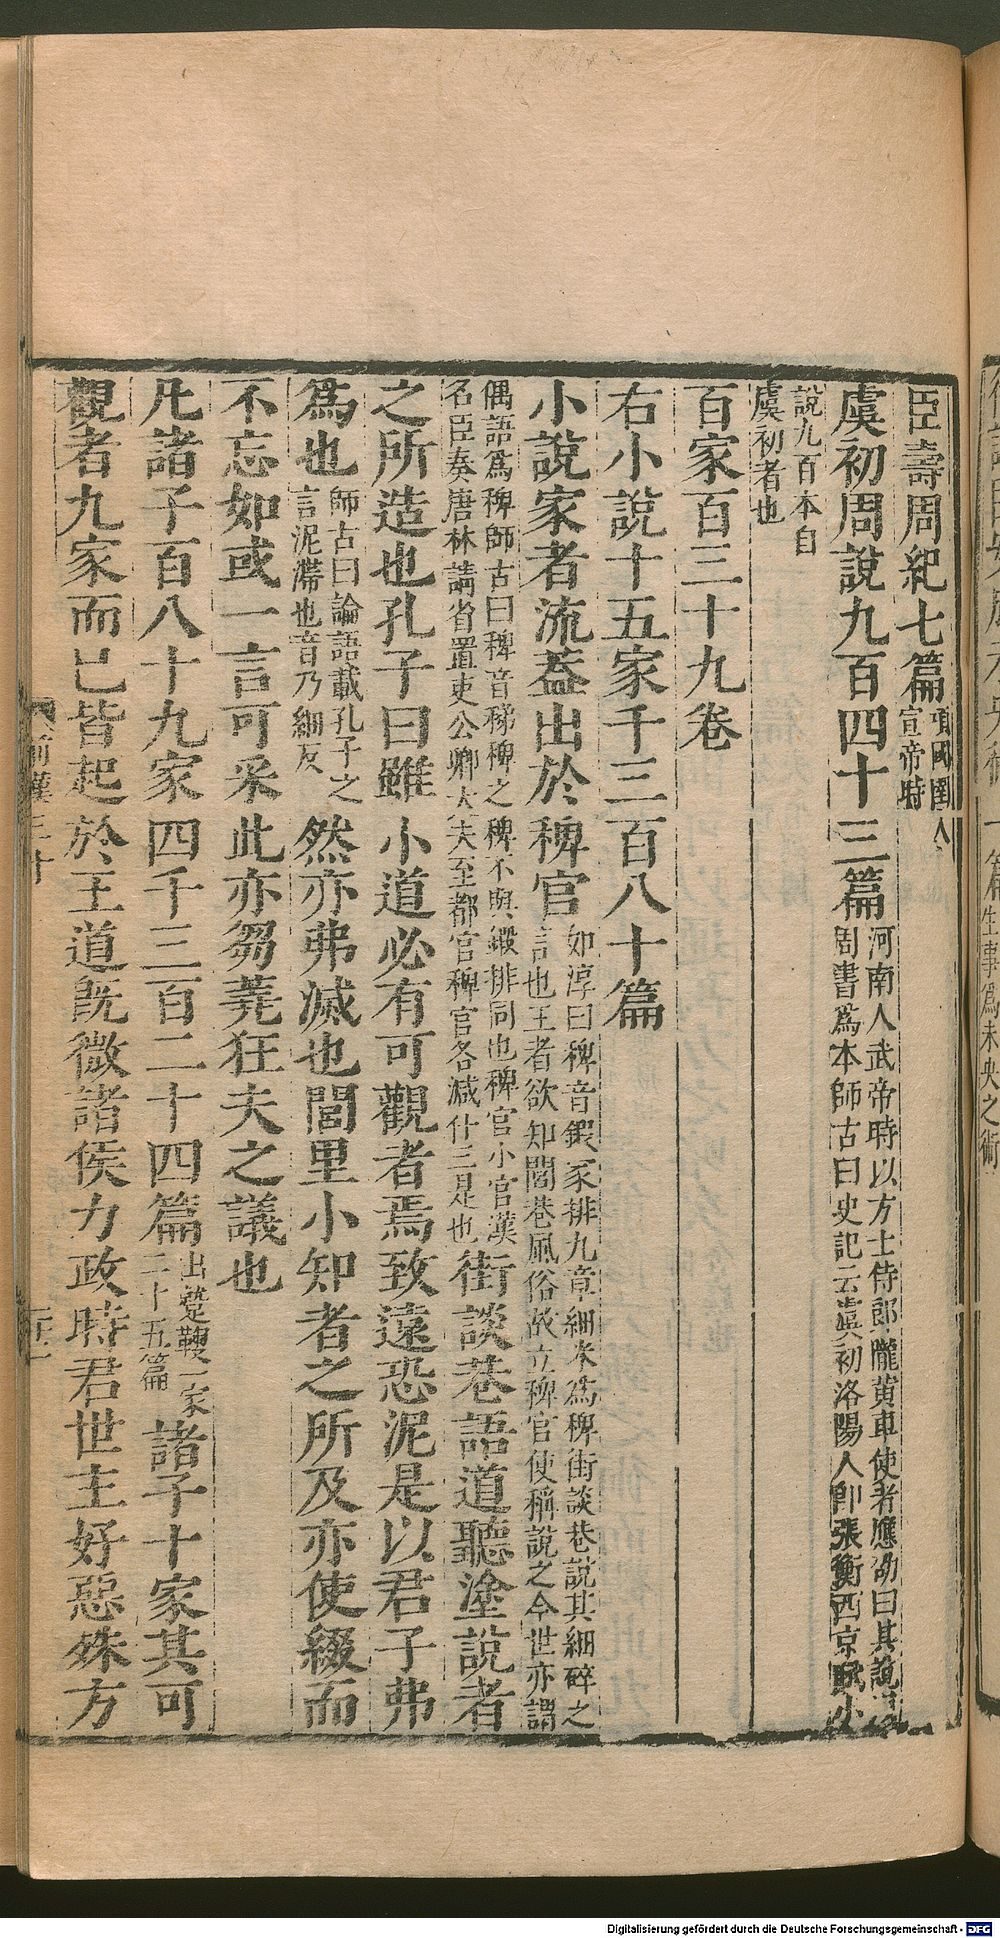 臣壽周紀七篇項國圉人宣帝時
虞初周說九百四十三篇河南人武帝時以方士侍郎隴黃車使者應劭曰其說以周書爲本師古曰史記云虞初洛陽人卽張衡西京賦小
說九百本自虞初者也
百家百三十九卷
右小說十五家千三百八十篇
小說家者流蓋出於稗官如淳曰稗音鍜家排九章細米爲稗街談巷說其細碎之言也王者欲知閭巷風俗故立稗官使稱說之今世亦謂
偶語爲稗師古曰稗音稊稗之稗不與鍛排同也稗官小官漢名臣奏唐林請省置吏公卿大夫至都官稗官各減什三是也街談巷語道聽塗說者
之所造也孔子曰雖小道必有可觀者焉致遠恐泥是以君子弗
爲也師古曰論語載孔子之言泥滯也音乃細反然亦弗滅也閭里小知者之所及亦使綴而
不忘如或一言可釆此亦芻蕘狂夫之議也
凡諸子百八十九家四千三百二十四篇出蹵鞠一家二十五篇諸子十家其可
觀者九家而已皆起於王道旣微諸侯力政時君世主好惡殊方
前漢三十
生事爲未央之術
Digitalisierung gefördert durch die Deutsche Forschungsgemeinschaft - DFG